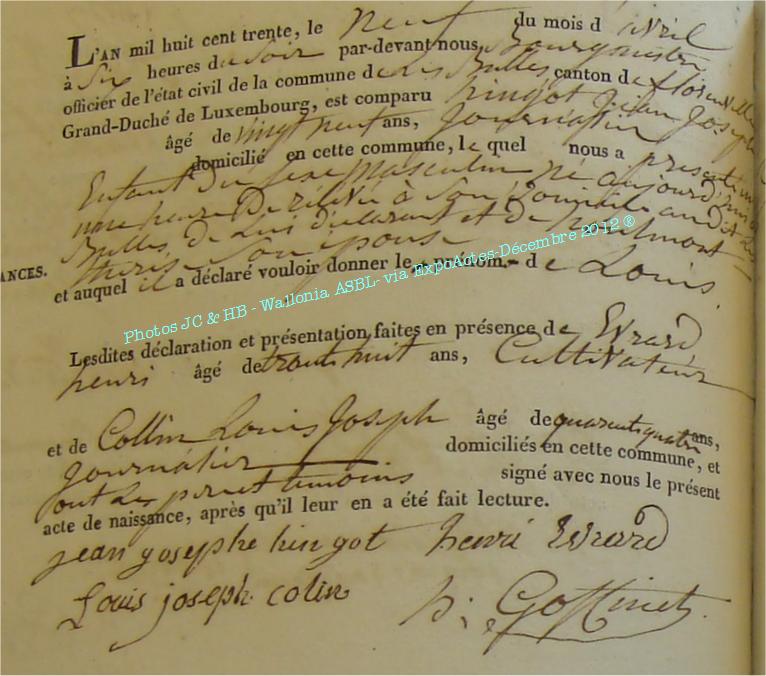 L'AN mil huit cent trente, le neuf du mois d avril
à Six heures du Soir par-devant nous Bourgmestre
officier de l'état civil de la commune de les Bulles canton de florenville
Grand-Duché de Luxembourg, est comparu hingot Jean Joseph
âgé de vingt neuf ans, Journalier
domicilié en cette commune, le quel nous a présenté un
Enfant du Sexe masculin né aujourd'hui à
une heure De relevée à Son Domicile audit les
Bulles, de Lui déclarant et de
Son épouse
ANCES.
et auquel il a déclaré vouloir donner le prénom - de Louis
Photos JC & HB - Wallonia ASBL- via ExpoActes-Décembre 2012 ®
Lesdites déclaration et présentation faites en présence de Evrard
henri âgé de trente huit ans, Cultivateur
et de Collin Louis Joseph âgé de quarente quatre ans,
Journalier domiciliés en cette commune, et
ont Les et témoins signé avec nous le présent
acte de naissance, après qu'il leur en a été fait lecture.
jean josephe hingot henri Evrard
Louis joseph colin h: Goffinet